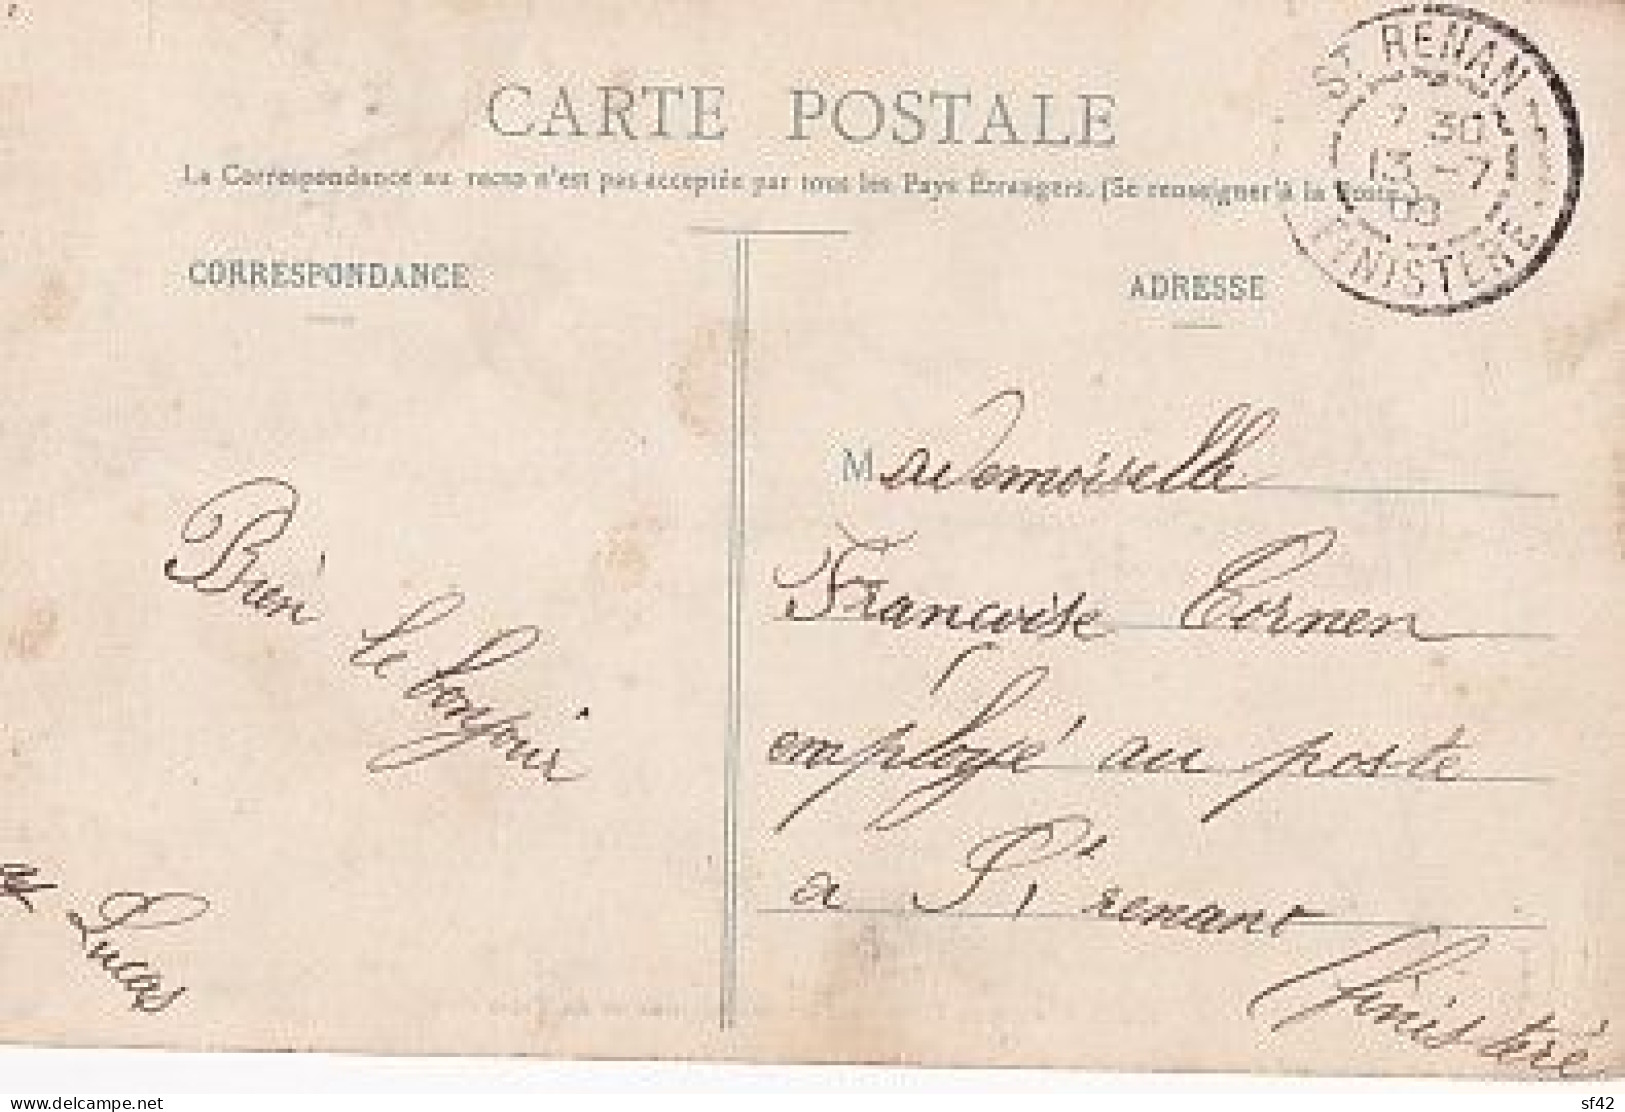 CARTE POSTALE
La Correspondance au recto n'est pas acceptée par tous les Pays Étrangers. (Se renseigner à la Poste.)
ST. RENAN
7 30
13 -7
09
FINISTERE
CORRESPONDANCE
ADRESSE
Bien
le bonjour
Lucas
Mademoiselle
Francoise Cornen
employé au poste
a St renant
finisteré
delcampe.net
sf42